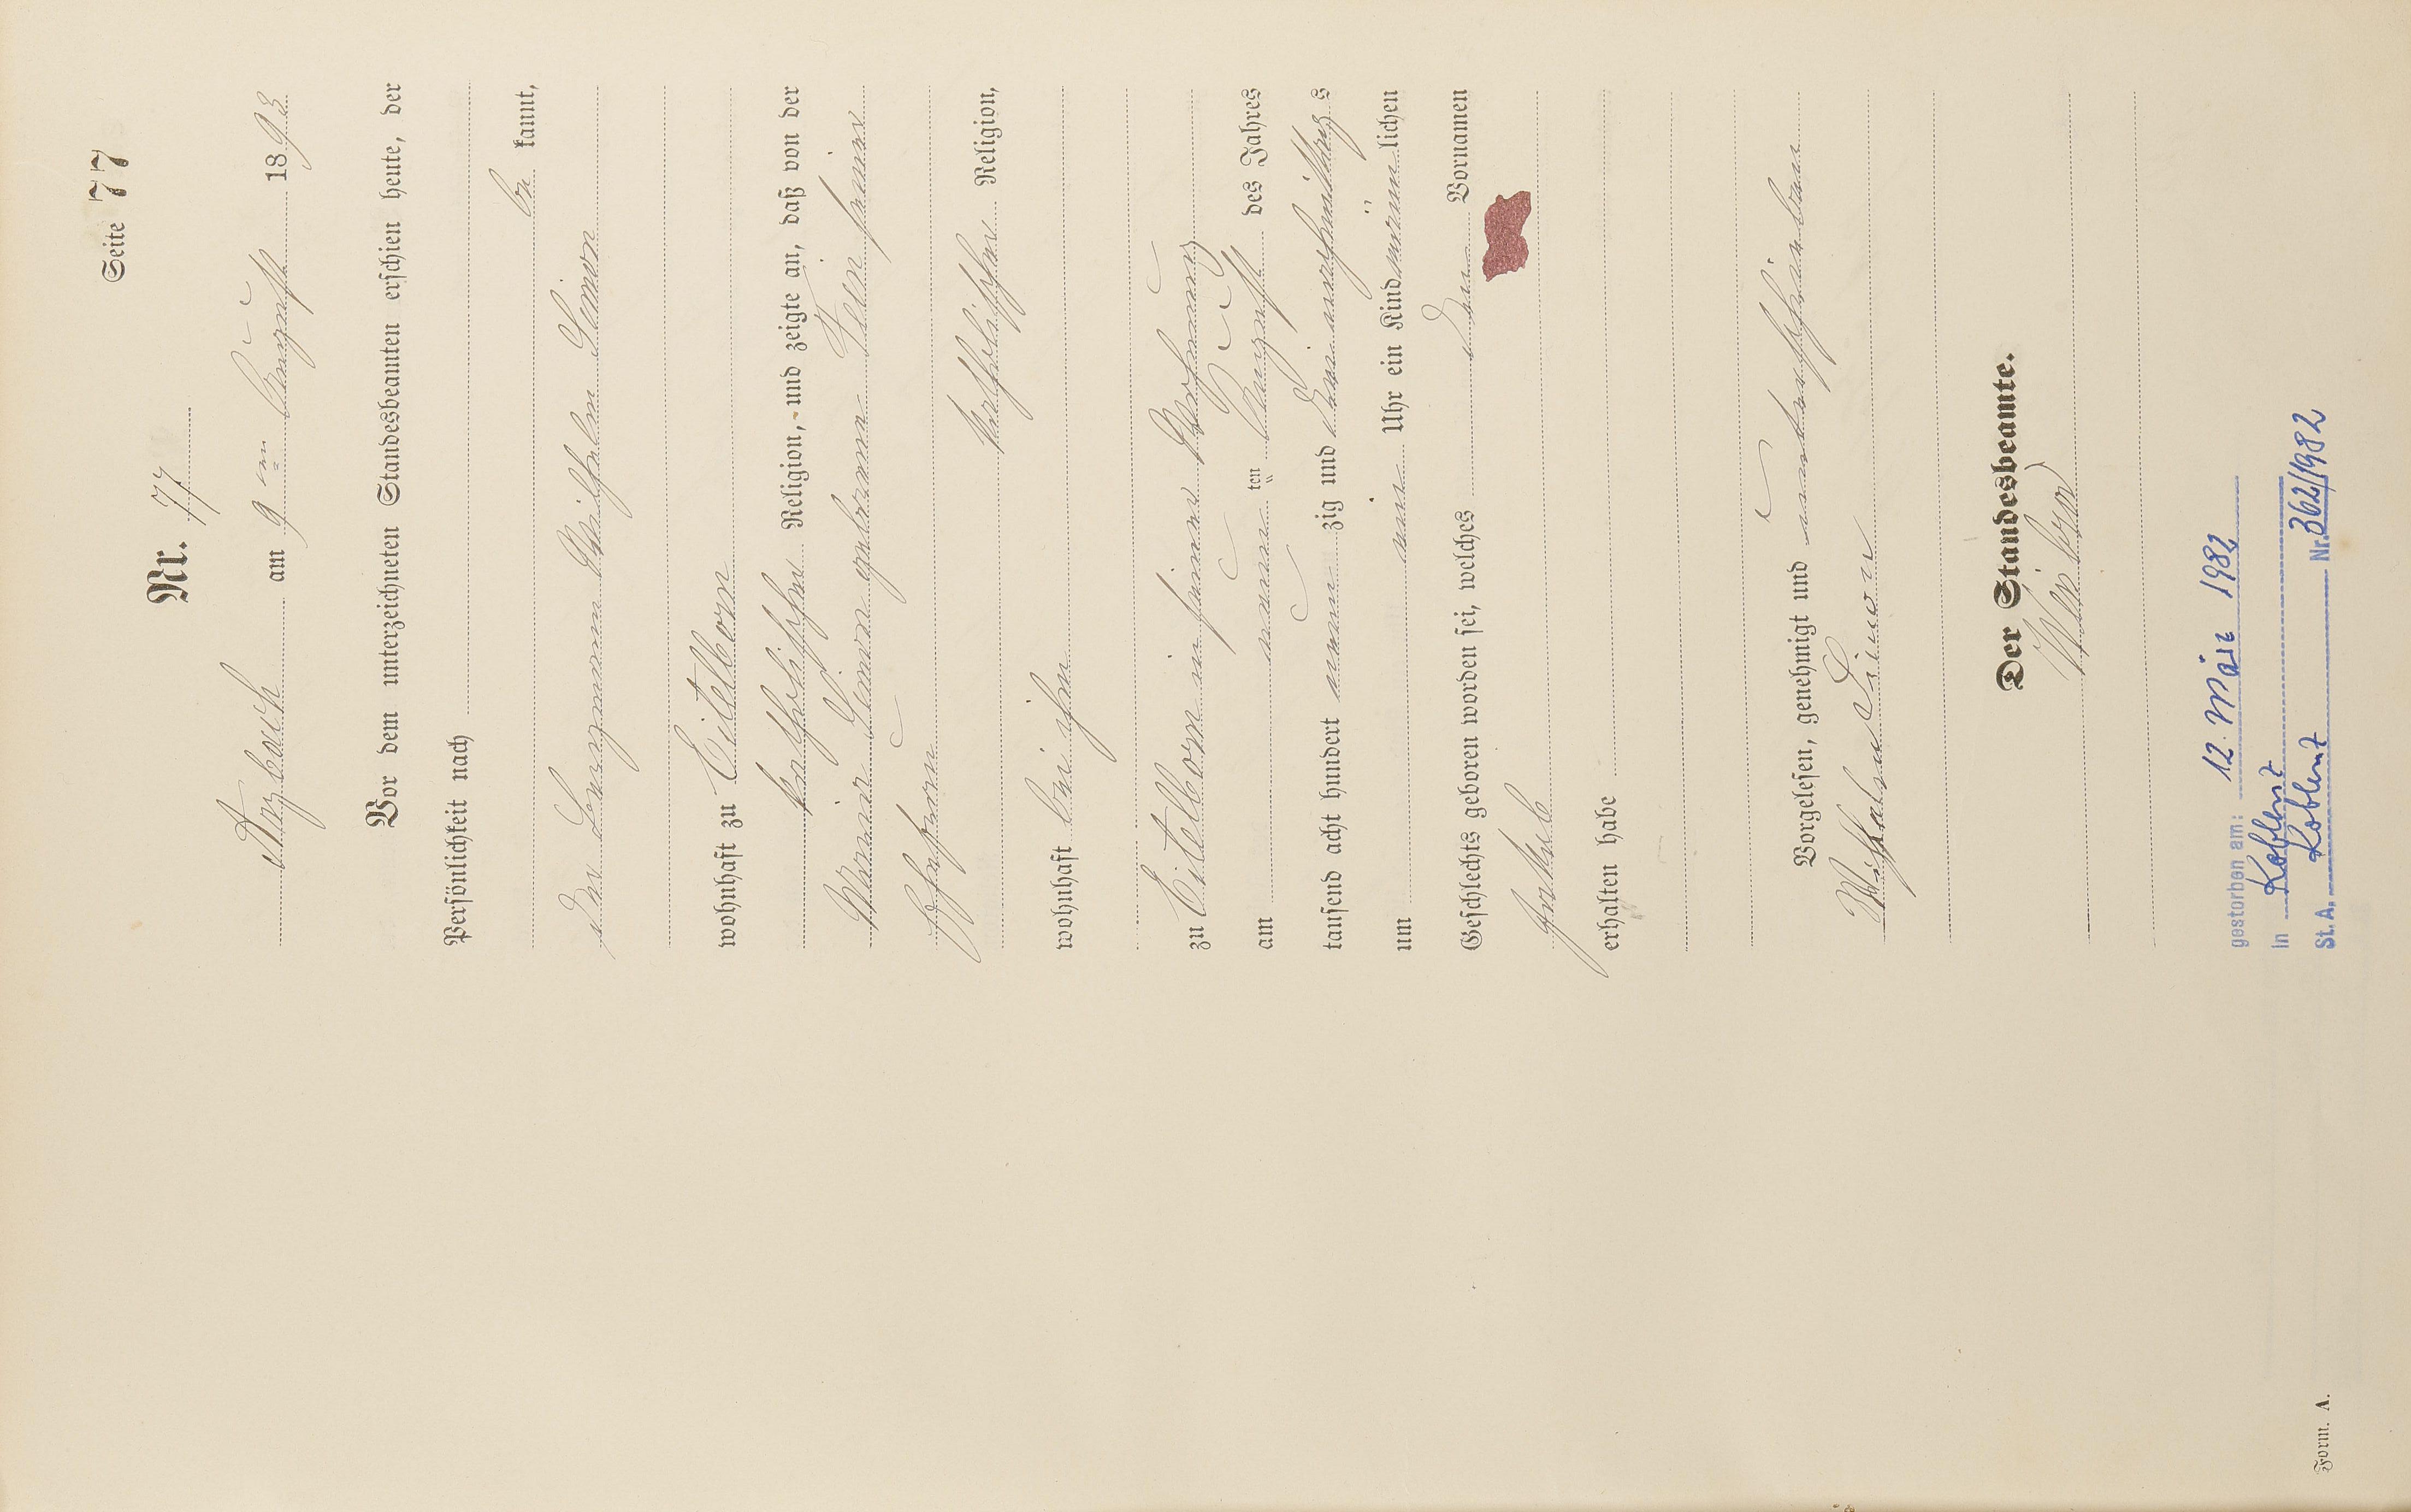 Seite 77
Nr. 77
Arzbach am 9ten August 1893
Vor dem unterzeichneten Standesbeamten erschien heute, der
Persönlichkeit nach
be kannt,
der Bergmann Wilhelm Simon
wohnhaft zu Eitelborn
katholischer Religion, und zeigte an, daß von der
Maria Simon geborene Fein seiner
Ehefrau
katholischer Religion,
wohnhaft bei ihm
zu Eitelborn in seiner Wohnung
am neun ten August des Jahres
tausend acht hundert neun zig und drei vormittags
um ein Uhr ein Kind männlichen
Geschlechts geboren worden sei, welches den Vornamen
Jakob
erhalten habe
Vorgelesen, genehmigt und unterschrieben
Wilhelm Simon
Der Standesbeamte.
gestorben am: 12. März 1982
in Koblenz
St. A. Koblenz Nr. 362/1982
Form. A.